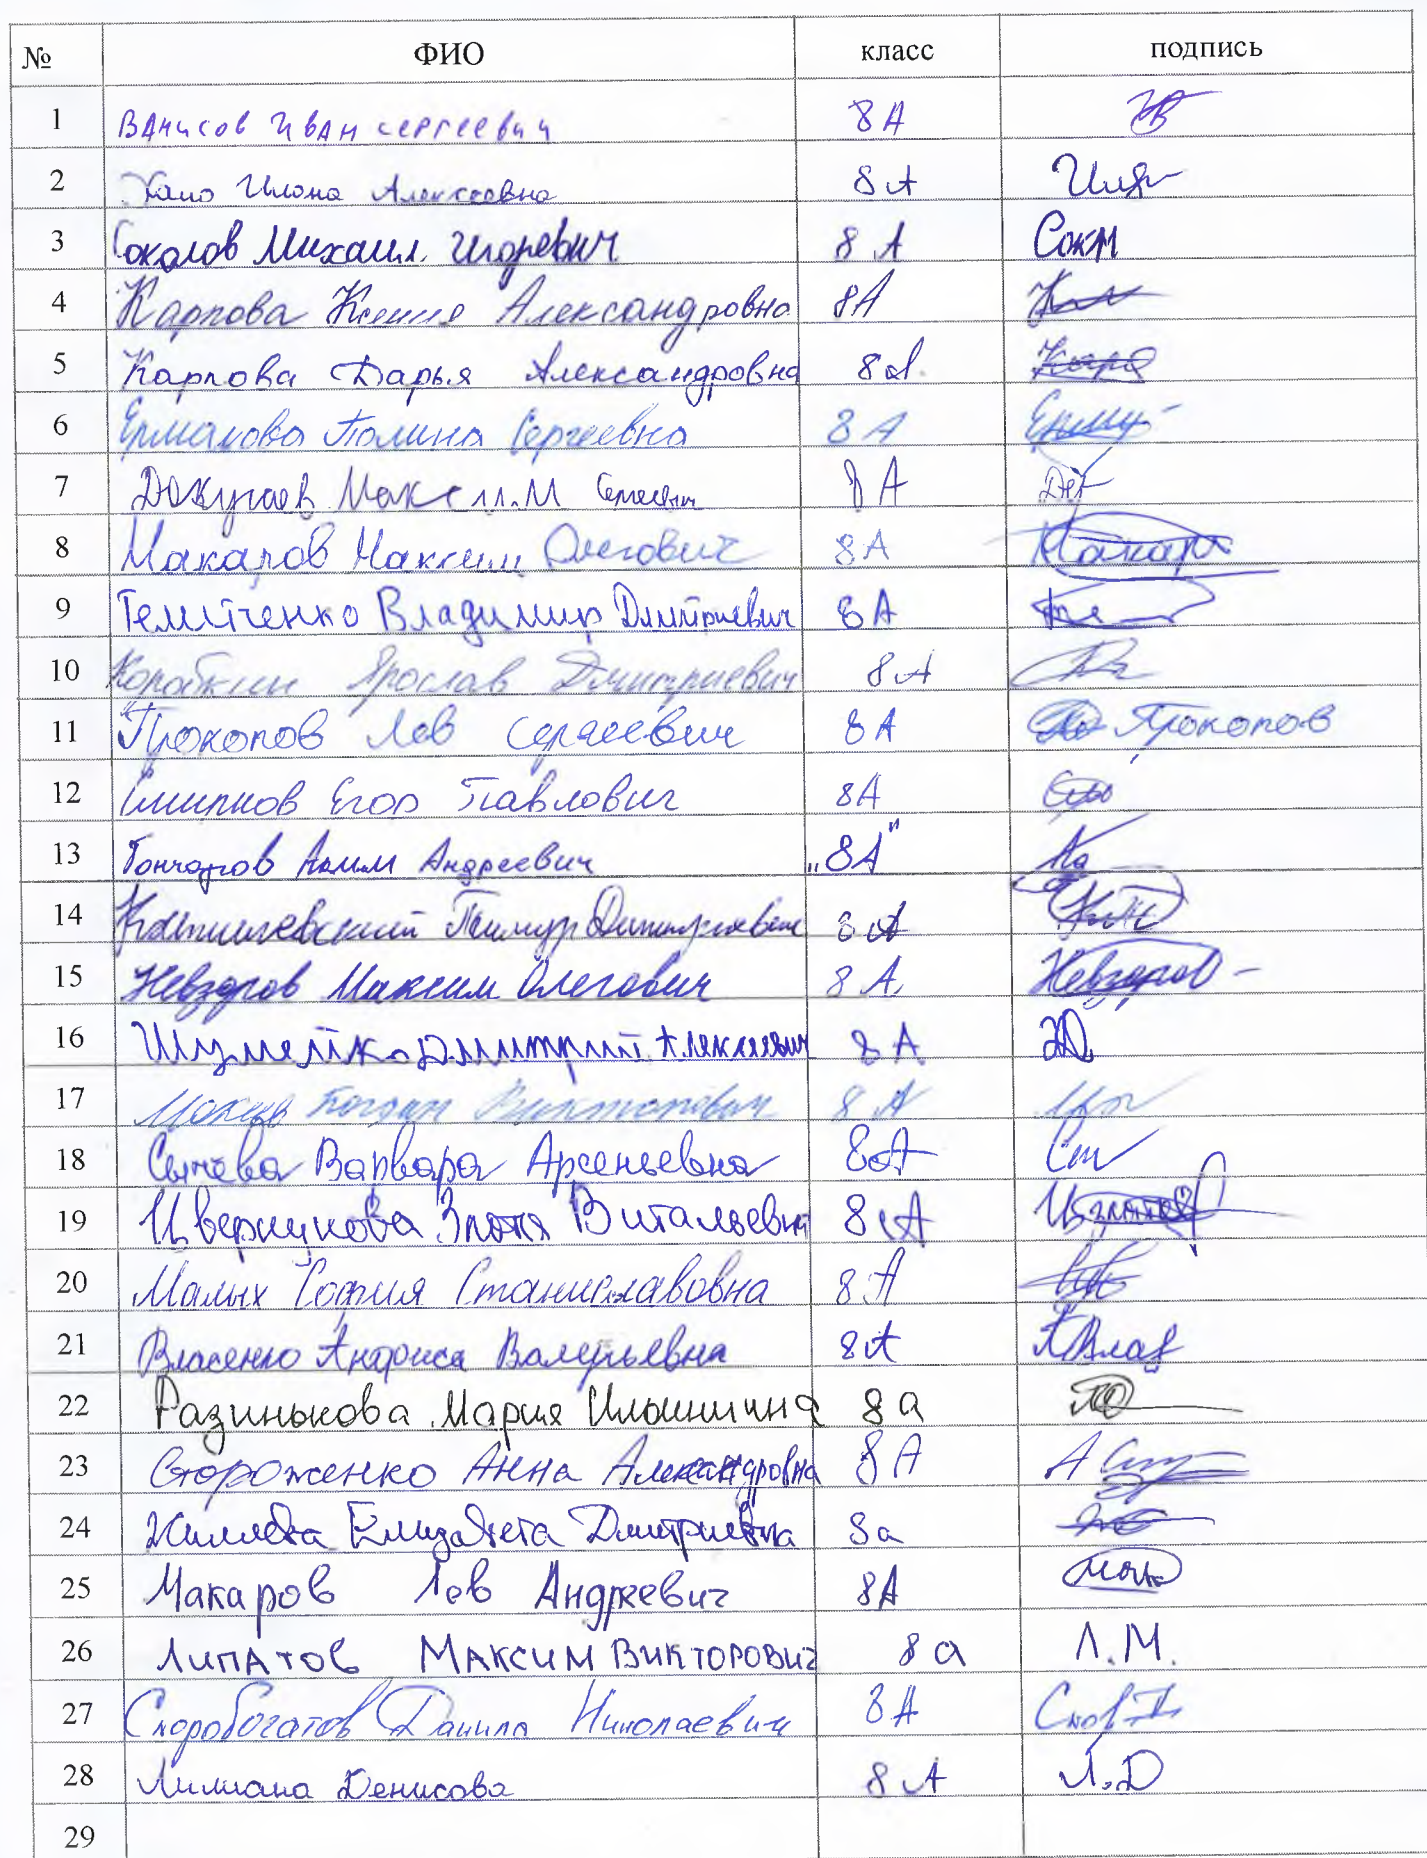 № ФИО класс подпись
1 Ванисов Иван Сергеевич 8А
2 Илона Алексеевна 8А
3 Соколов Михаил Игоревич 8А Сокм
4 Карпова Ксения Александровна 8А
5 Карпова Дарья Александровна 8А
6 Ермакова Полина Сергеевна 8А
7 Докучаев Максим Сергеевич 8А
8 Макаров Максим Олегович 8А Макар
9 Темитченко Владимир Дмитриевич 8А
10 Коробкин Ярослав Дмитриевич 8А
11 Прокопов Лев Сергеевич 8А Прокопов
12 Смирнов Егор Павлович 8А
13 Гончаров Аким Андреевич „8А"
14 Тимур Дмитриевич 8А
15 Невзоров Максим Олегович 8А Невзоров
16 Дмитрий Алексеевич 8А
17 Богдан Викторович 8А
18 Сычева Варвара Арсеньевна 8А
19 Цвернукова Злата Витальевна 8А
20 Малых София Станиславовна 8А
21 Власенко Андриса Валерьевна 8А АВлас
22 Разинькова Мария Ильинична 8а
23 Стороженко Анна Александровна 8А
24 Жиляева Елизавета Дмитриевна 8а
25 Макаров Лев Андреевич 8А
26 Липатов Максим Викторович 8а Л.М.
27 Скоробогатов Данила Николаевич 8А
28 Лилиана Денисова 8А Л.D
29